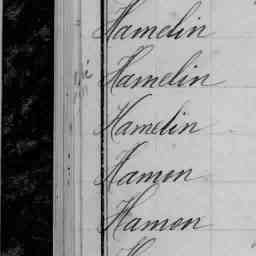 Hamelin
Hamelin
Hamelin
Hamon
Hamon